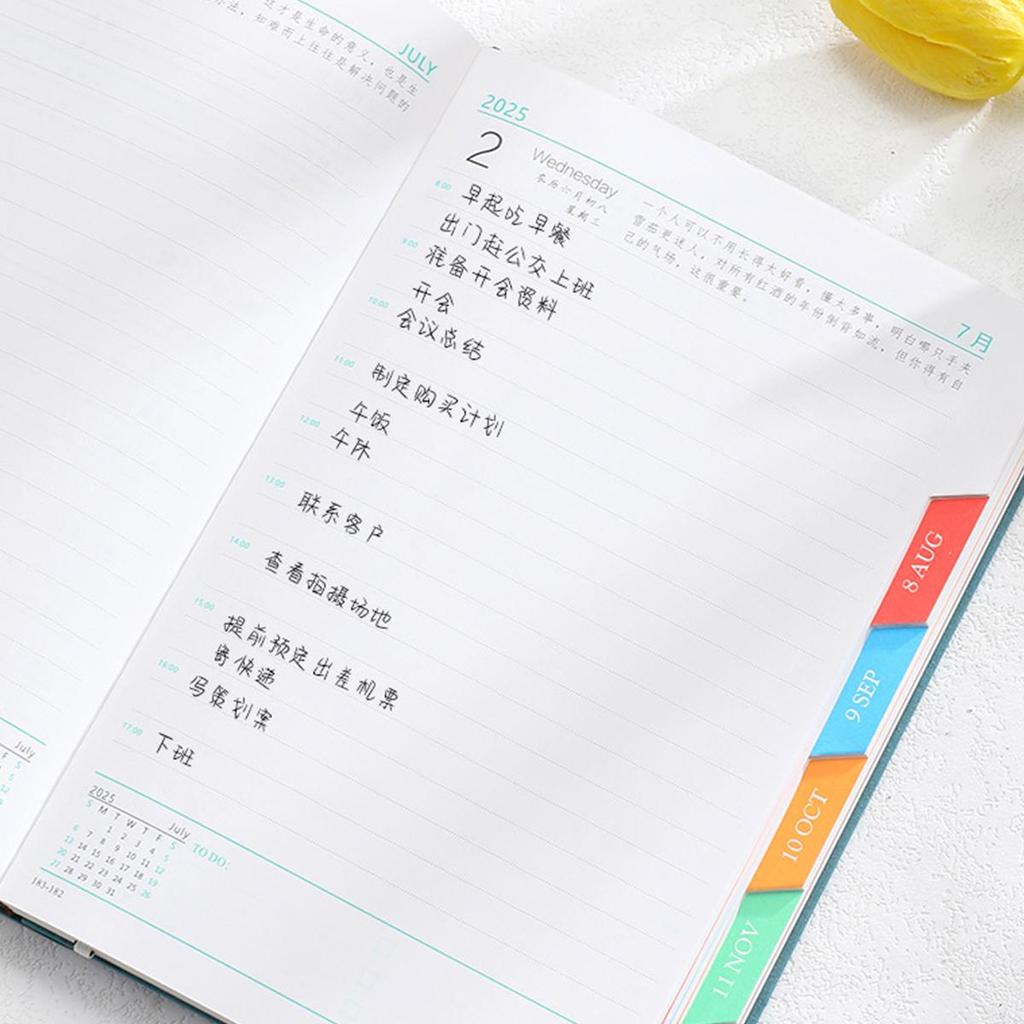 这才是生命的意义，也是生
办法，知难而上往往是解决问题的
JULY
2025
2
Wednesday
农历六月初八
星期三
一个人可以不用长得太好看，懂太多事，明白哪只手夹
雪茄更迷人，对所有红酒的年份倒背如流，但你得有自
己的气场，这很重要。
7月
8:00
早起吃早餐
出门赶公交上班
9:00
准备开会资料
开会
10:00
会议总结
11:00
制定购买计划
午饭
12:00
午休
13:00
联系客户
14:00
查看拍摄场地
15:00
提前预定出差机票
寄快递
16:00
写策划案
17:00
下班
2025 July
S M T W T F S
1 2 3 4 5
6 7 8 9 10 11 12
13 14 15 16 17 18 19
20 21 22 23 24 25 26
27 28 29 30 31
TO DO:
183-182
July
F S
8 AUG
9 SEP
10 OCT
11 NOV